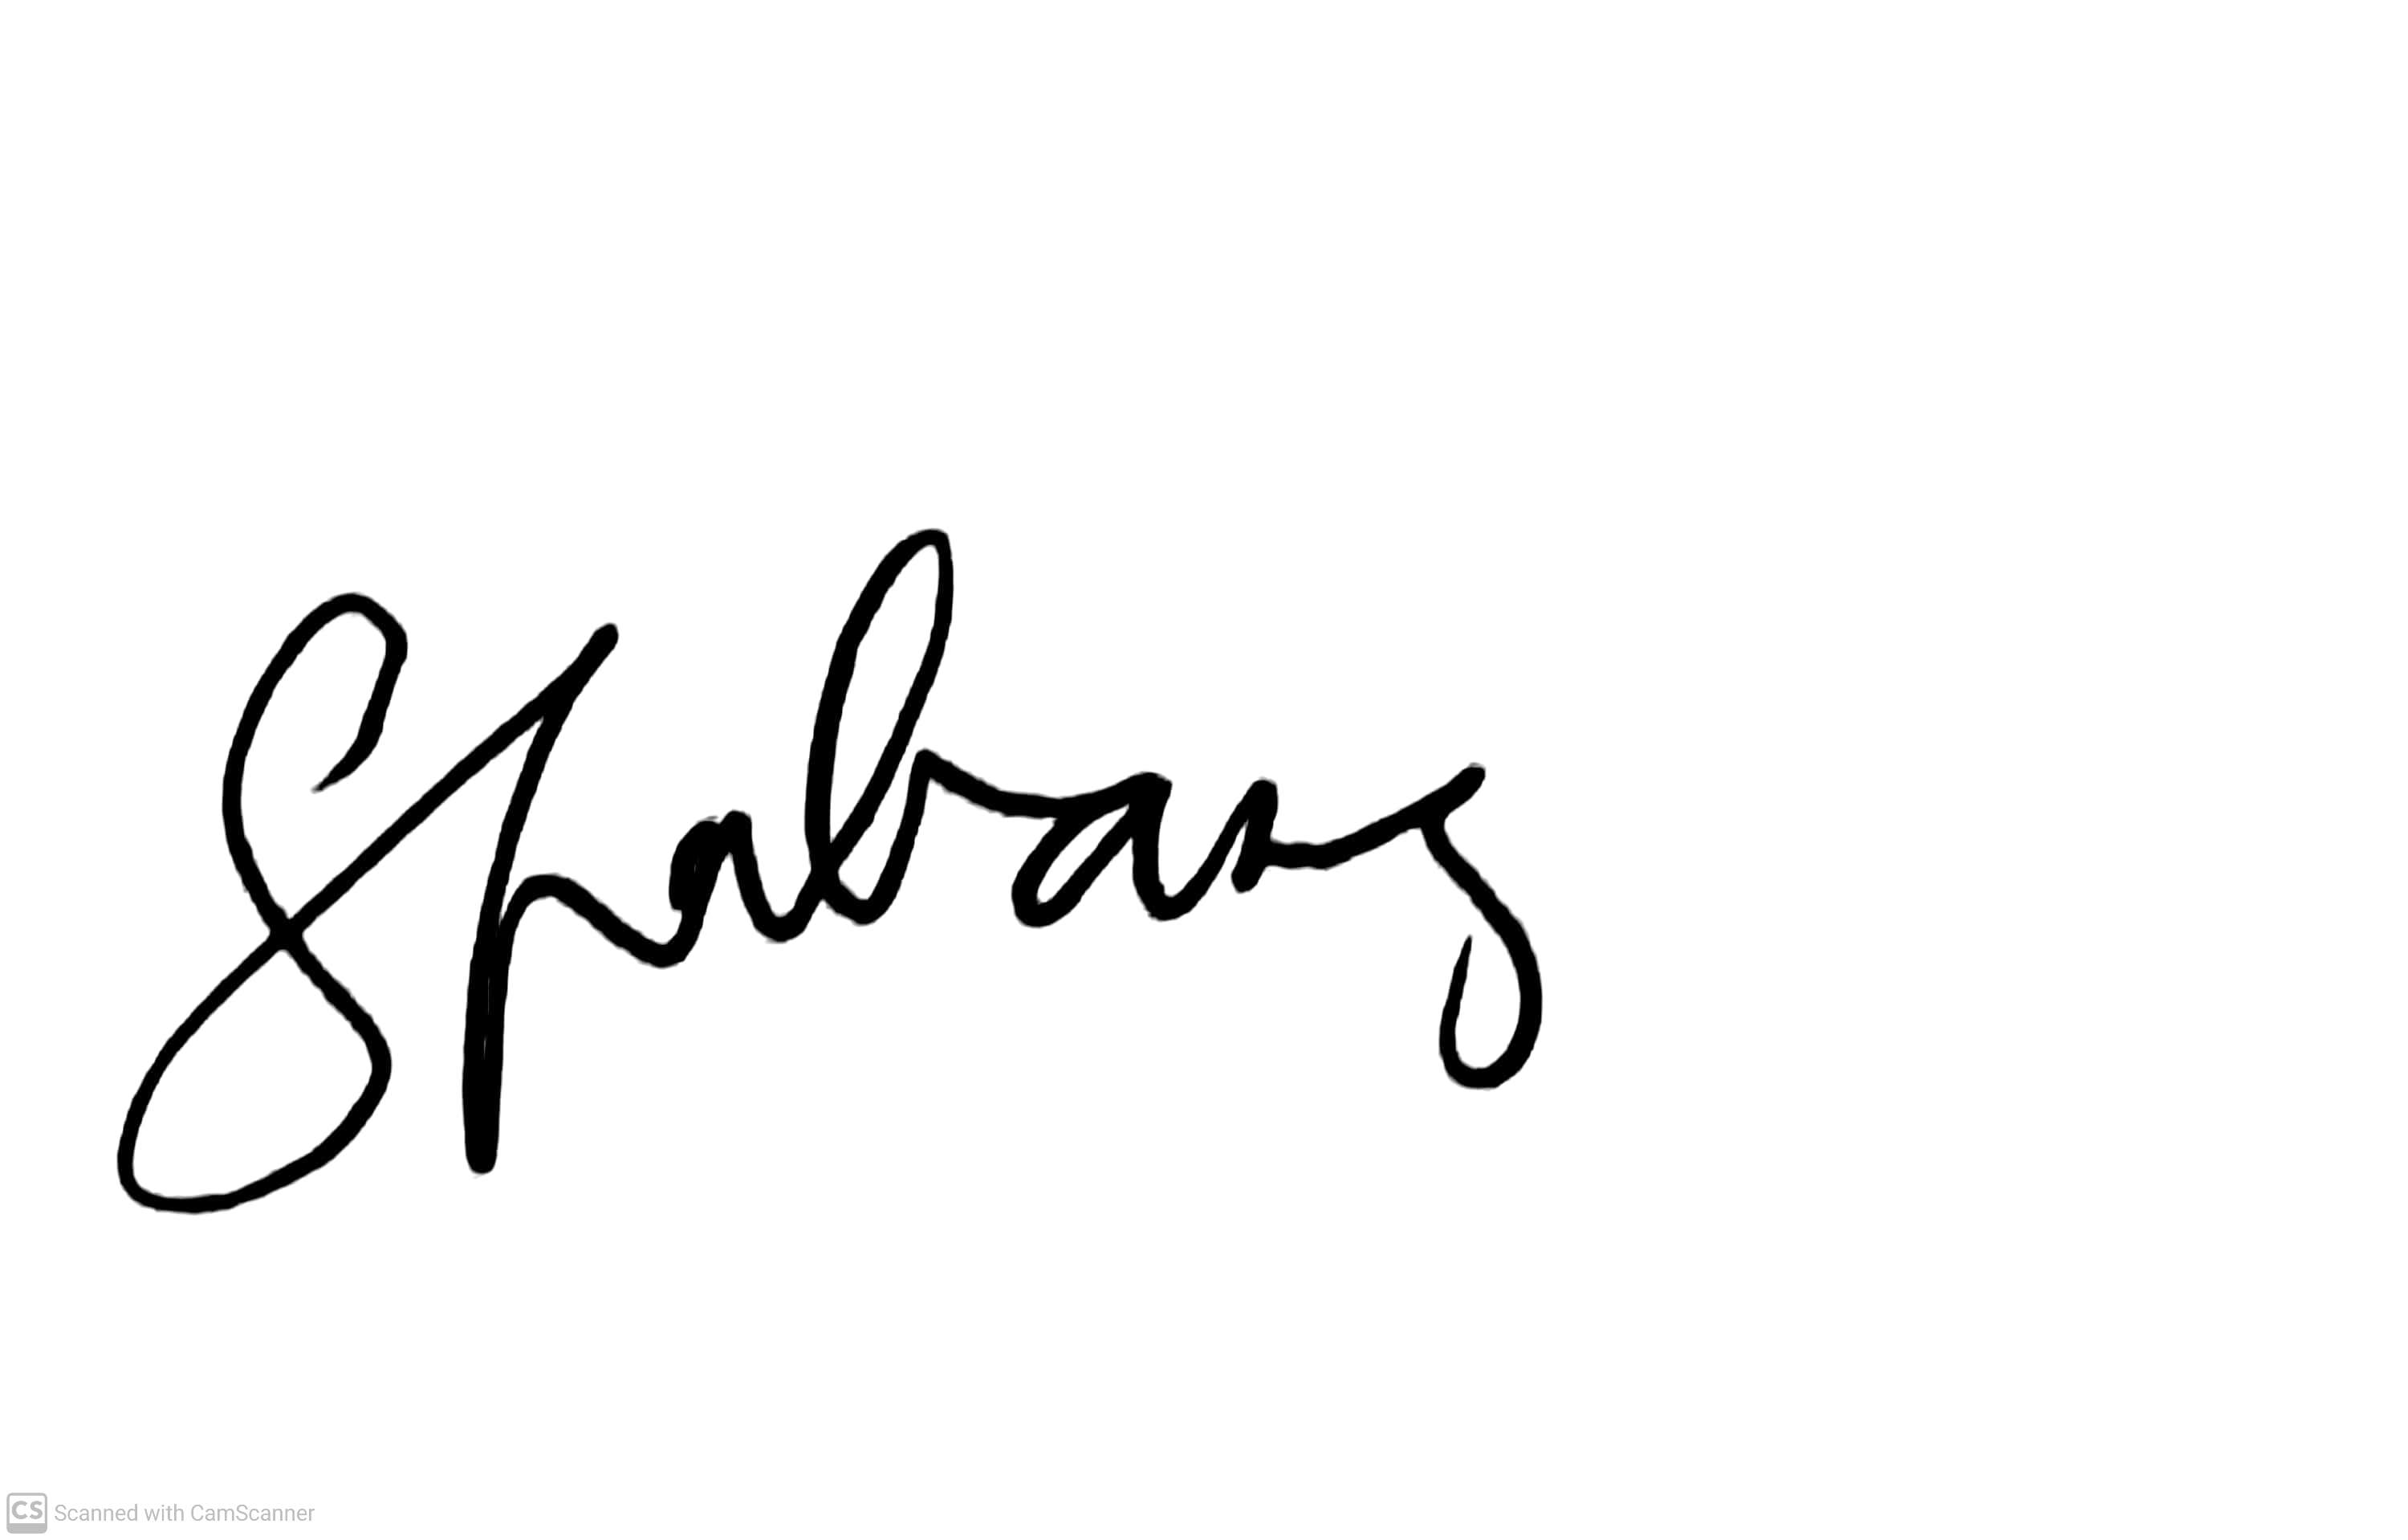 Shabans
CS Scanned with CamScanner